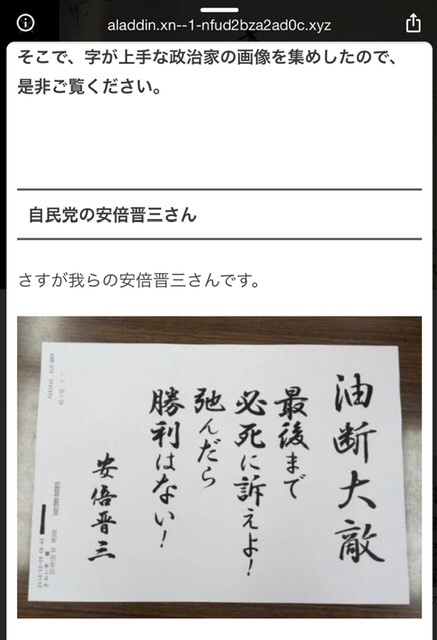 aladdin.xn--1-nfud2bza2ad0c.xyz
そこで、字が上手な政治家の画像を集めしたので、
是非ご覧ください。
自民党の安倍晋三さん
さすが我らの安倍晋三さんです。
油断大敵
最後まで
必死に訴えよ!
弛んだら
勝利はない!
安倍晋三